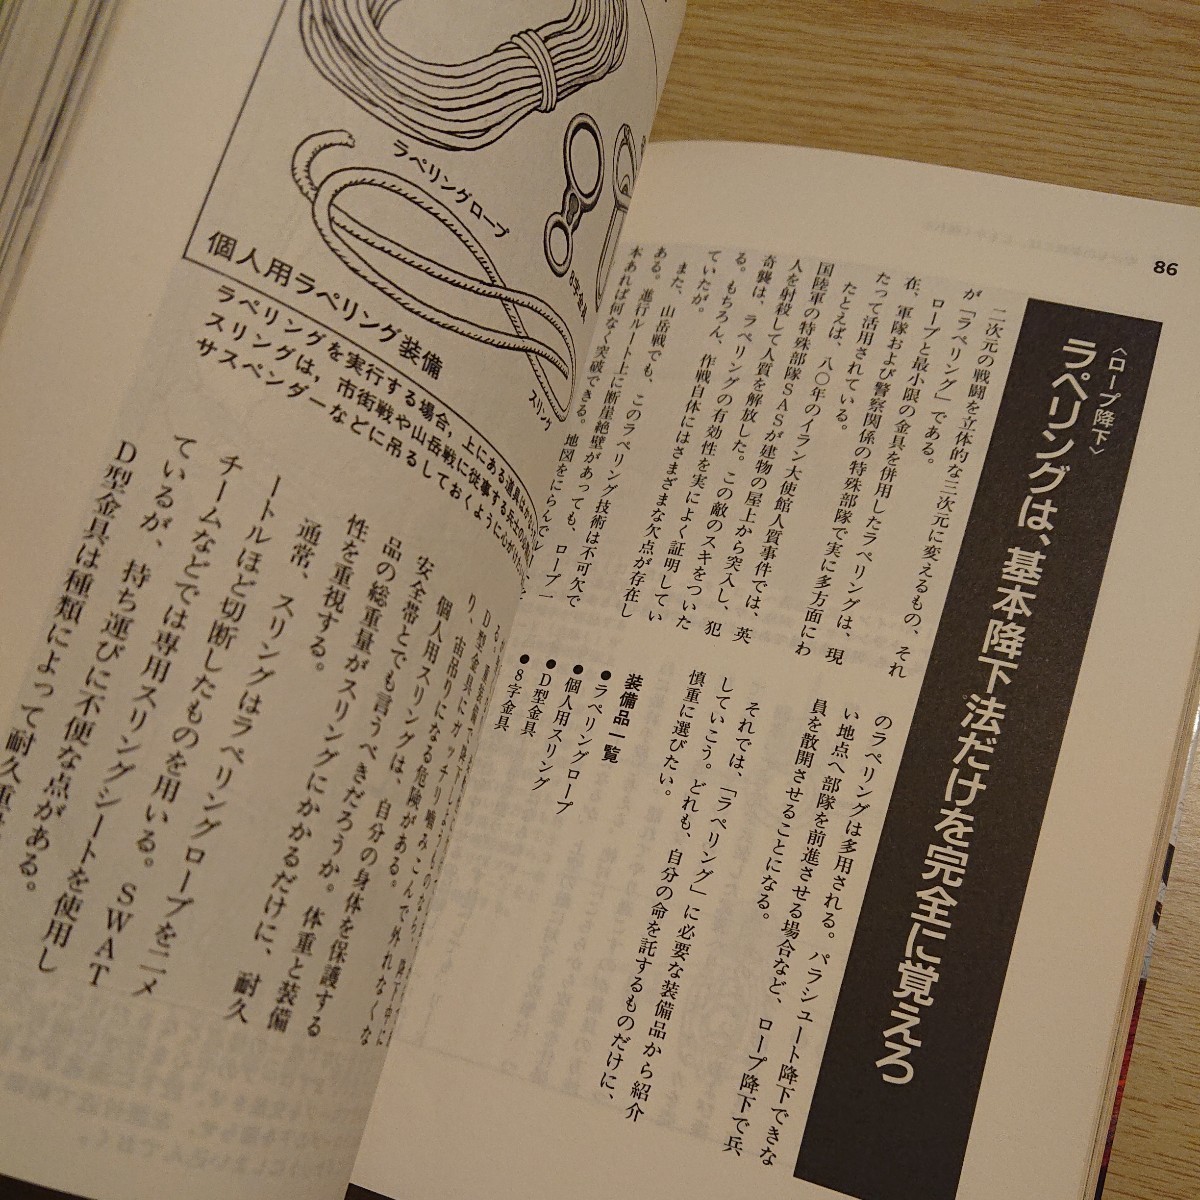 86
〈ロープ降下〉
ラペリングは、基本降下法だけを完全に覚えろ
二次元の戦闘を立体的な三次元に変えるもの、それ
が「ラペリング」である。
ロープと最小限の金具を併用したラペリングは、現
在、軍隊および警察関係の特殊部隊で実に多方面にわ
たって活用されている。
たとえば、八〇年のイラン大使館人質事件では、英
国陸軍の特殊部隊SASが建物の屋上から突入し、犯
人を射殺して人質を解放した。この敵のスキをついた
奇襲は、ラペリングの有効性を実によく証明してい
る。もちろん、作戦自体にはさまざまな欠点が存在し
ていたが。
また、山岳戦でも、このラペリング技術は不可欠で
ある。進行ルート上に断崖絶壁があっても、ロープ一
本あれば何なく突破できる。地図をにらんで
のラペリングは多用される。パラシュート降下できな
い地点へ部隊を前進させる場合など、ロープ降下で兵
員を散開させることになる。
それでは、「ラペリング」に必要な装備品から紹介
していこう。どれも、自分の命を託するものだけに、
慎重に選びたい。
装備品一覧
●ラペリングロープ
●個人用スリング
●D型金具
●8字金具
ラペリングロープ
8字金具
スリング
個人用ラペリング装備
ラペリングを実行する場合，上にある道具は
スリングは，市街戦や山岳戦に従事する兵士の
サスペンダーなどに吊るしておくように心が
る。
D型金具にガッチリ噛みこんで外れなくな
り、宙吊りになる危険がある。
個人用スリングは、自分の身体を保護する
安全帯とでも言うべきだろうか。体重と装備
品の総重量がスリングにかかるだけに、耐久
性を重視する。
通常、スリングはラペリングロープを二メ
ートルほど切断したものを用いる。SWAT
チームなどでは専用スリングシートを使用し
ているが、持ち運びに不便な点がある。
D型金具は種類によって耐久重